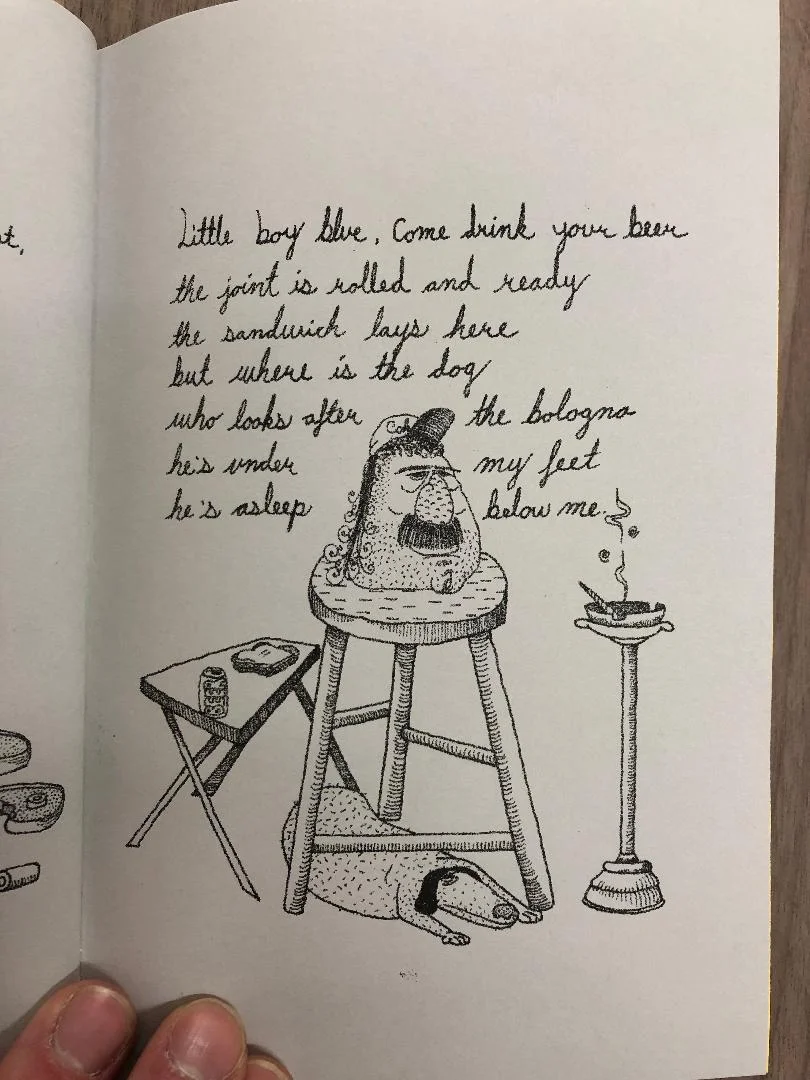 at,
Little boy blue, Come drink your beer
the joint is rolled and ready
the sandwich lays here
but where is the dog
who looks after the bologna
he's under my feet
he's asleep below me.
BEER